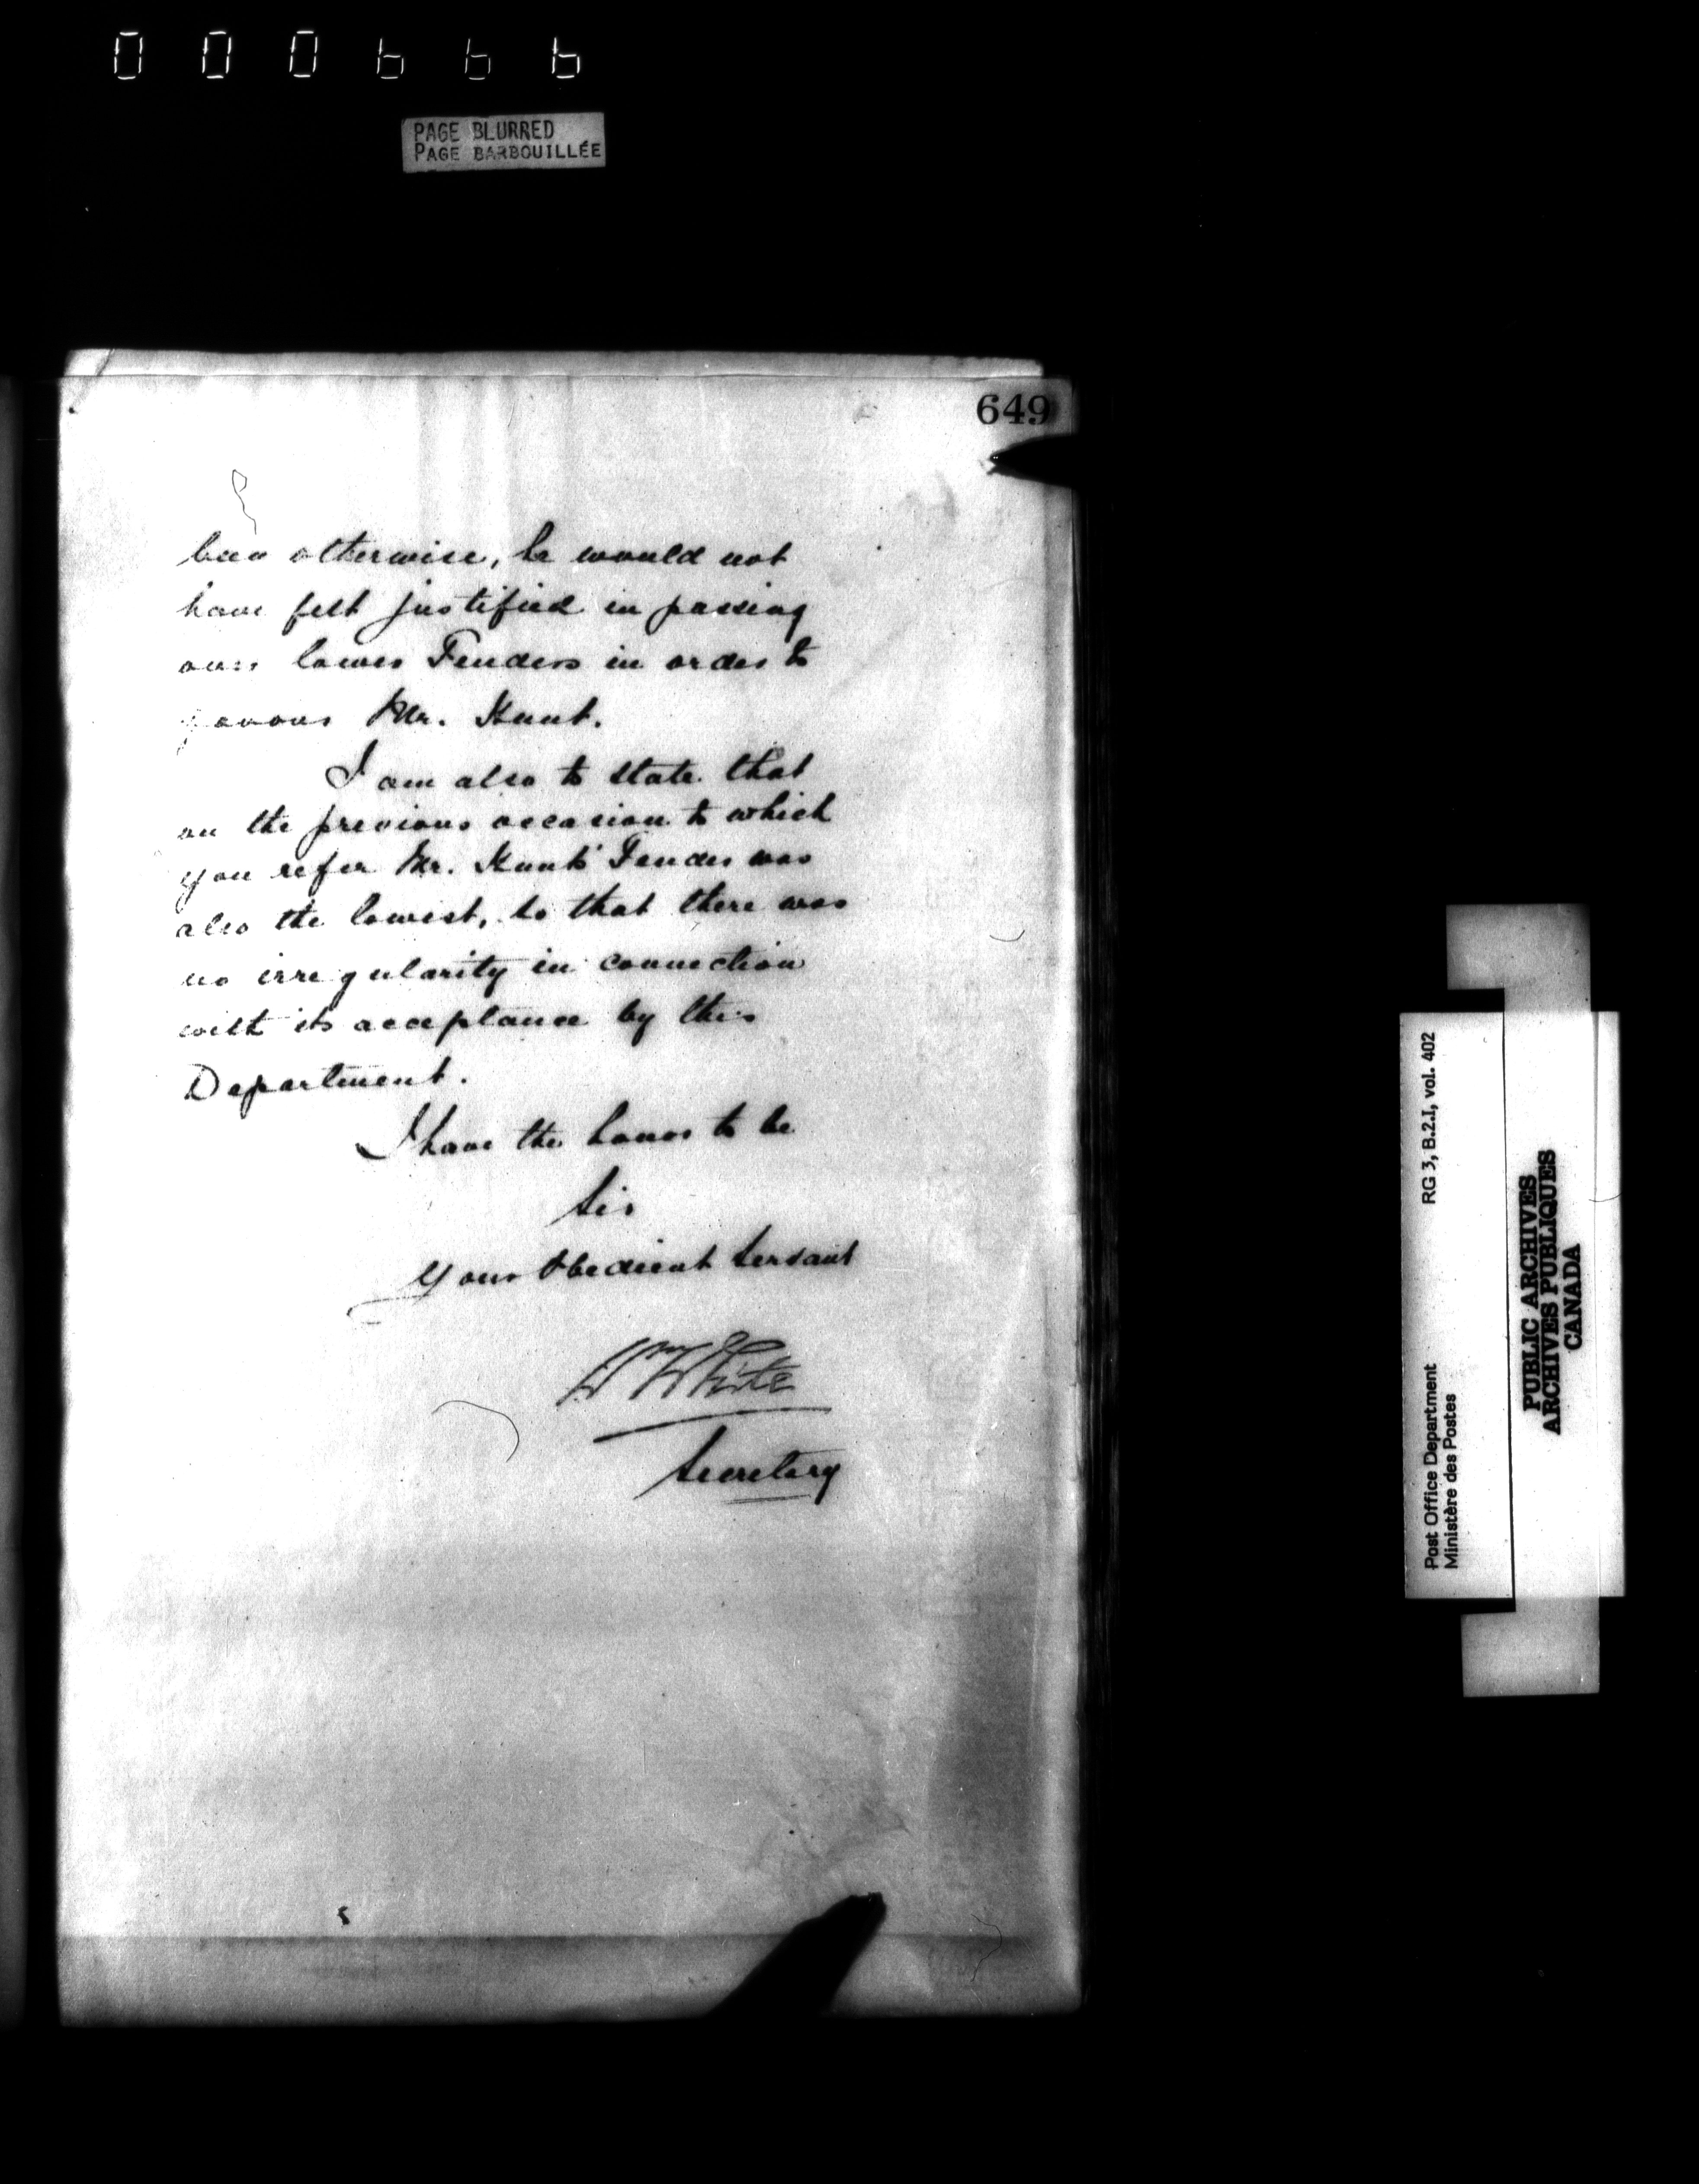 PAGE BLURRED
PAGE BARBOUILLÉE
649
been otherwise, he would not
have felt justified in passing
over lower Tenders in order to
favour Mr. Hunt.
I am also to state that
on the previous occasion to which
you refer Mr. Hunt's Tender was
also the lowest, so that there was
no irregularity in connection
with its acceptance by this
Department.
I have the honor to be
Sir
Your Obedient Servant
Wm White
Secretary
Post Office Department
Ministère des Postes
RG 3, B.2.I, vol. 402
PUBLIC ARCHIVES
ARCHIVES PUBLIQUES
CANADA